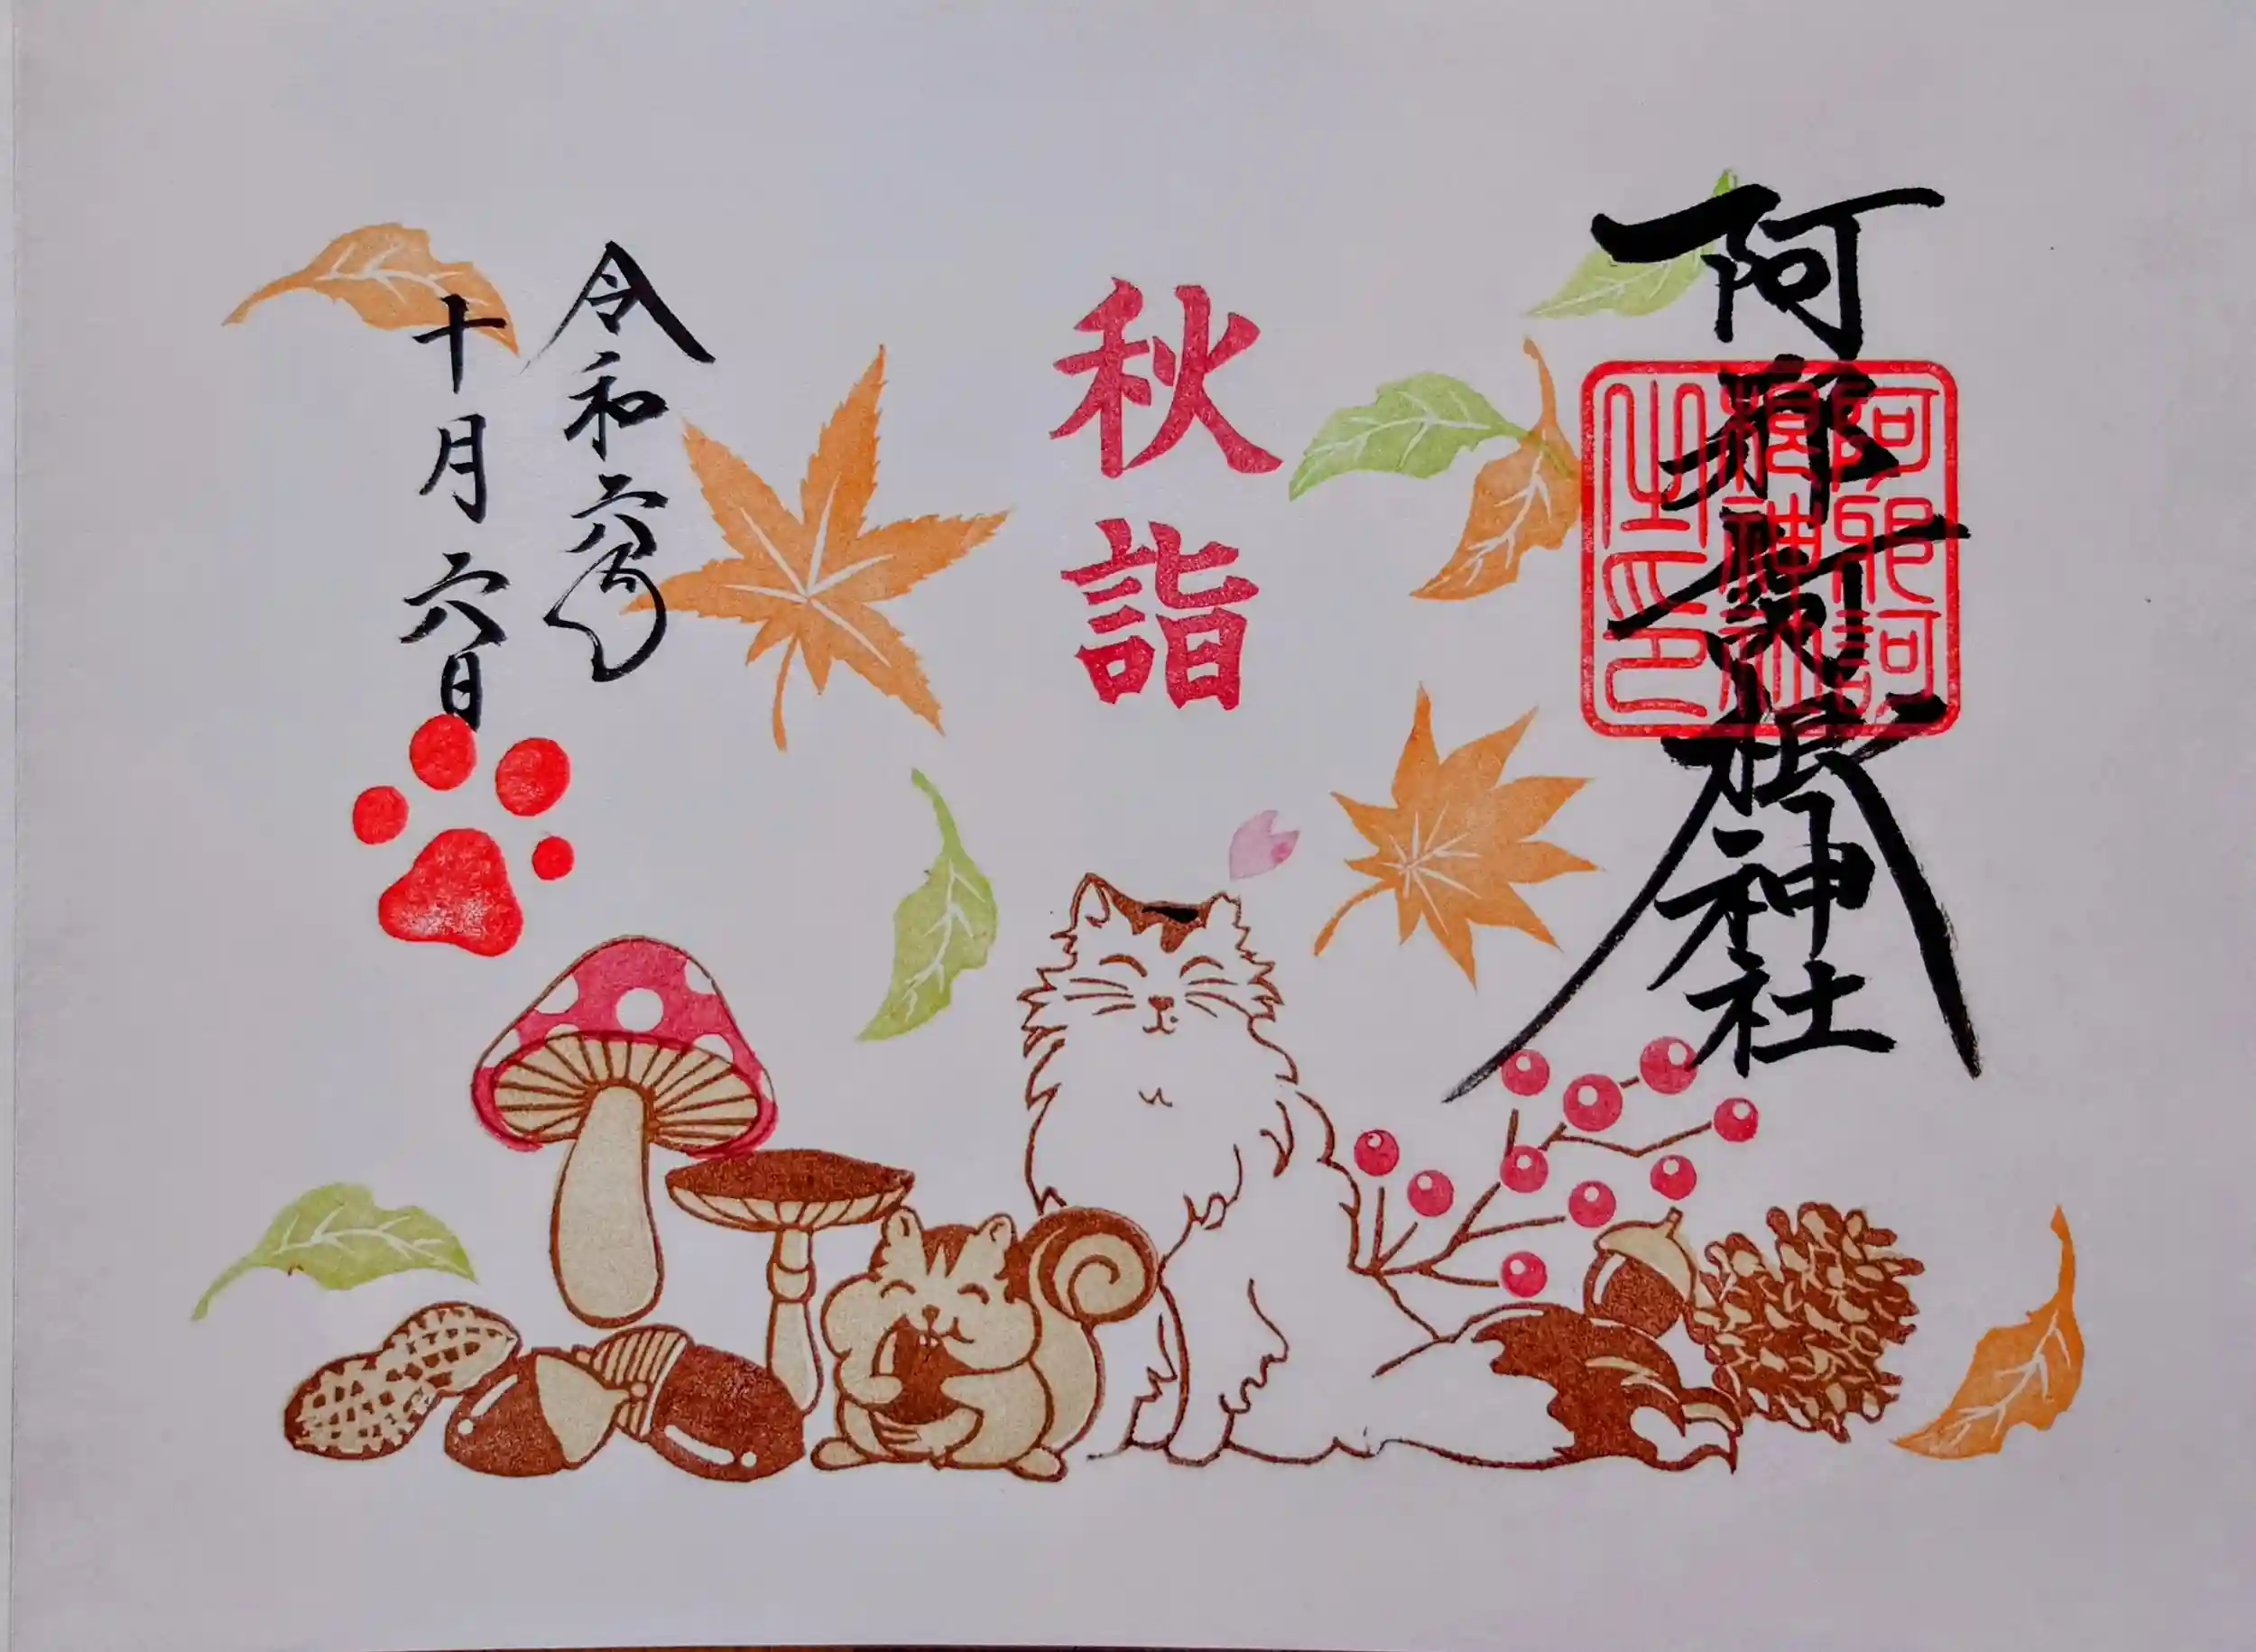 阿邪訶根神社
阿邪訶
根神社
之印
秋詣
令和六年
十月六日